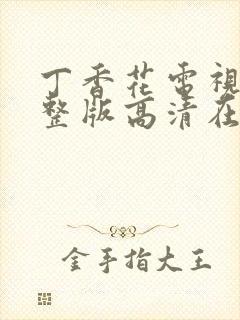 丁香花電視
整版高清在
金手指大王